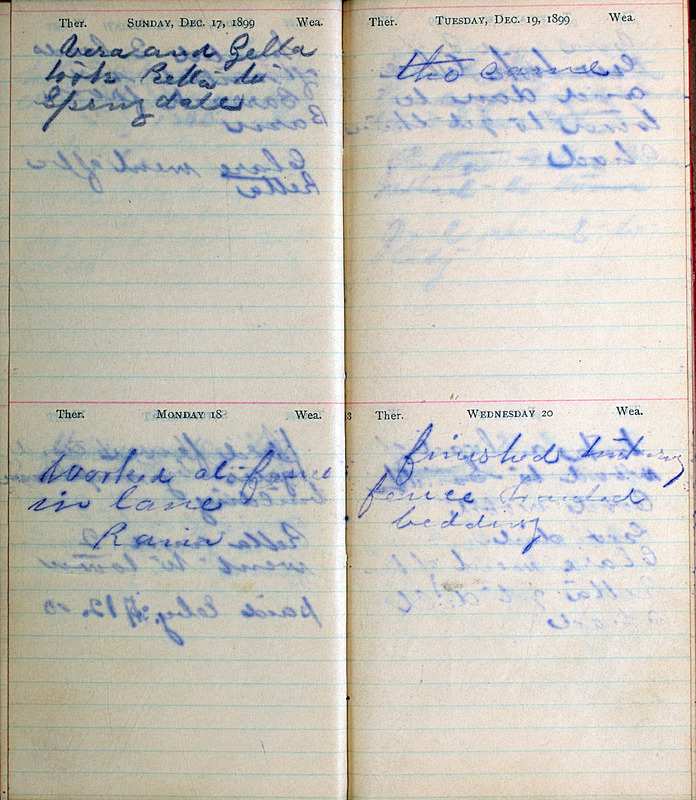 Ther. SUNDAY, DEC. 17, 1899 Wea.
Vera and Zella
took Retta to
Springdale
Ther. MONDAY 18 Wea.
Worked at fence
in lane
Rain
Ther. TUESDAY, DEC. 19, 1899 Wea.
the same
3 Ther. WEDNESDAY 20 Wea.
finished
fence hauled
bedding